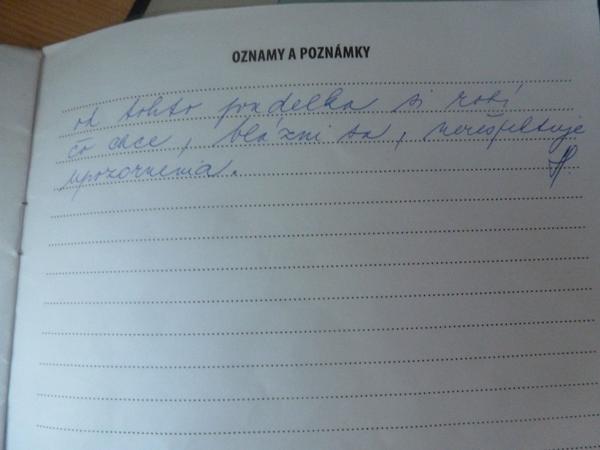 OZNAMY A POZNÁMKY
od tohto pondelka si robí
čo chce, blázni sa, nerešpektuje
upozornenia.